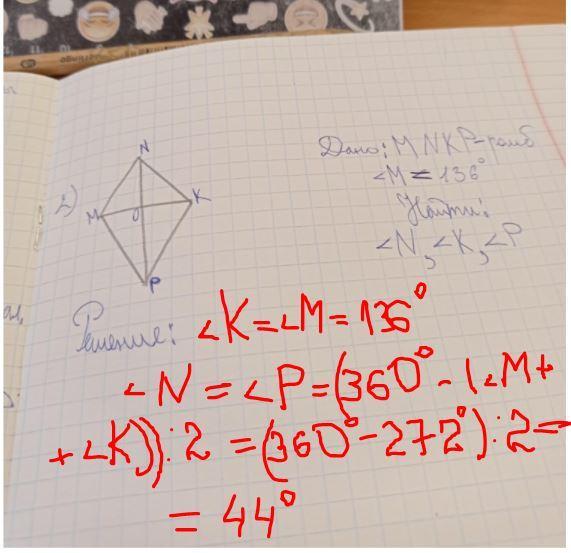 N
Дано: MNKP-ромб
2)
∠M = 136°
M
O
K
Найти:
∠N, ∠K, ∠P
P
Решение: ∠K = ∠M = 136°
∠N = ∠P = (360° - (∠M +
+ ∠K)) : 2 = (360° - 272°) : 2 =
= 44°